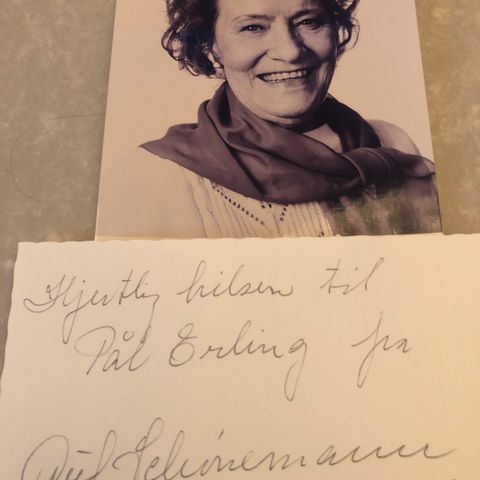 Hjertlig hilsen til
Pål Erling fra
Schønemann